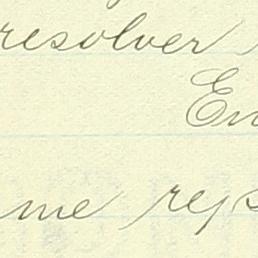 resolver
En
me reps